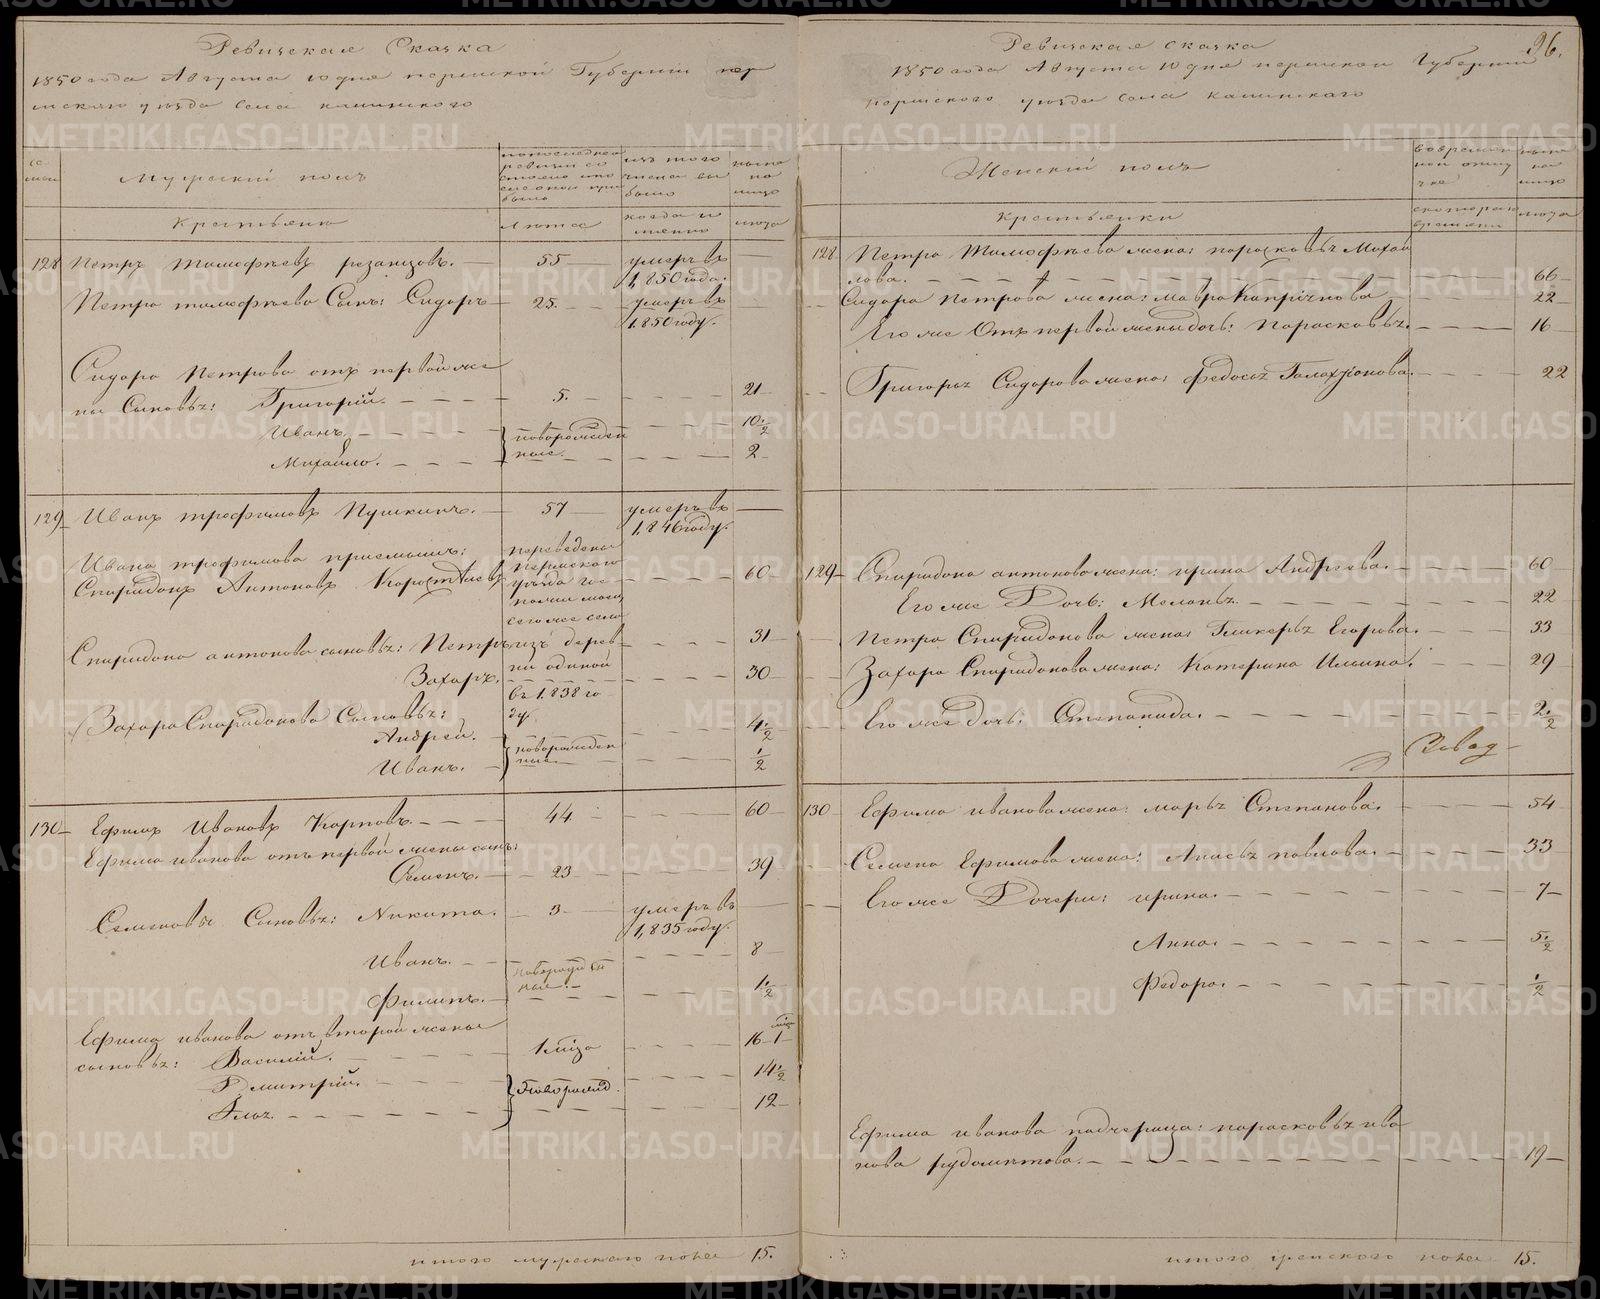 Ревизская Сказка
1850 года Августа 10 дня пермской Губернии пер
мскаго уезда Села каминскаго
Мужеский полъ
по последней ревизии состояло или после оной прибыло
изъ того числа выбыло
ныне на лицо
Крестьяне
Лета
когда и именно
лета
128 Петръ тимофѣевъ резанцовъ. 55 умеръ въ 1,850 года.
Петра тимофѣева Сынъ: Сидоръ 25. умеръ въ 1,850 году.
Сидора Петрова отъ первой же
ны Сыновья: Григорій. 5. 21
Иванъ. новорожден 10 ½
Михайло. ные. 2
129 Иванъ трофимовъ Пушкинъ. 57 умеръ въ 1,846 году.
Ивана трофимова приемышъ: переведены
Спиридонъ Антоновъ 60
пермскаго
уезда
сего же села
Спиридона антонова сыновья: Петръ изъ дерев 31
Захаръ. ни 30
въ 1.838 го
ду.
Захара Спиридонова Сыновья:
Андрей. новорожден 4 ½
Иванъ. ные. ½
130 Ефимъ Ивановъ Карповъ. 44 60
Ефима иванова отъ первой жены сынъ:
Семенъ. 23 39
Семеновы Сыновья: Никита. 3 умеръ въ 1,835 году.
Иванъ. новорожден 8
Филипъ. ные. 1 ½
Ефима иванова отъ второй жены
сыновья: Василій. 1 міца 16 1 міц
Дмитрій. Новорожд. 14 ½
Илья. 12
итого мужескаго пола 15.
96.
Ревизская сказка
1850 года Августа 10 дня пермской Губернии
пермскаго уезда Села каминскаго
Женский полъ
во временной отлучке
ныне на лицо
Крестьянки
с котораго времени
лета
128 Петра Тимофѣева жена: парасковья Михай
лова. 66
Сидора Петрова жена: мавра 22
Его же Отъ первой жены дочь: Парасковья. 16
Григорья Сидорова жена: федосья 22
129 Спиридона антонова жена: ирина Андреева. 60
Его же Дочь: Меланья. 22
Петра Спиридонова жена: Гликерья Егорова. 33
Захара Спиридонова жена: Катерина Ильина. 29
Его же дочь: Степанида. 2 ½
130 Ефима иванова жена: марья Степанова. 54
Семена Ефимова жена: Анисья павлова. 33
Его же Дочери: ирина. 7
Анна. 5 ½
Федора. ½
Ефима иванова падчерица: парасковья ива
нова рудометова. 19
итого женскаго пола 15.
METRIKI.GASO-URAL.RU